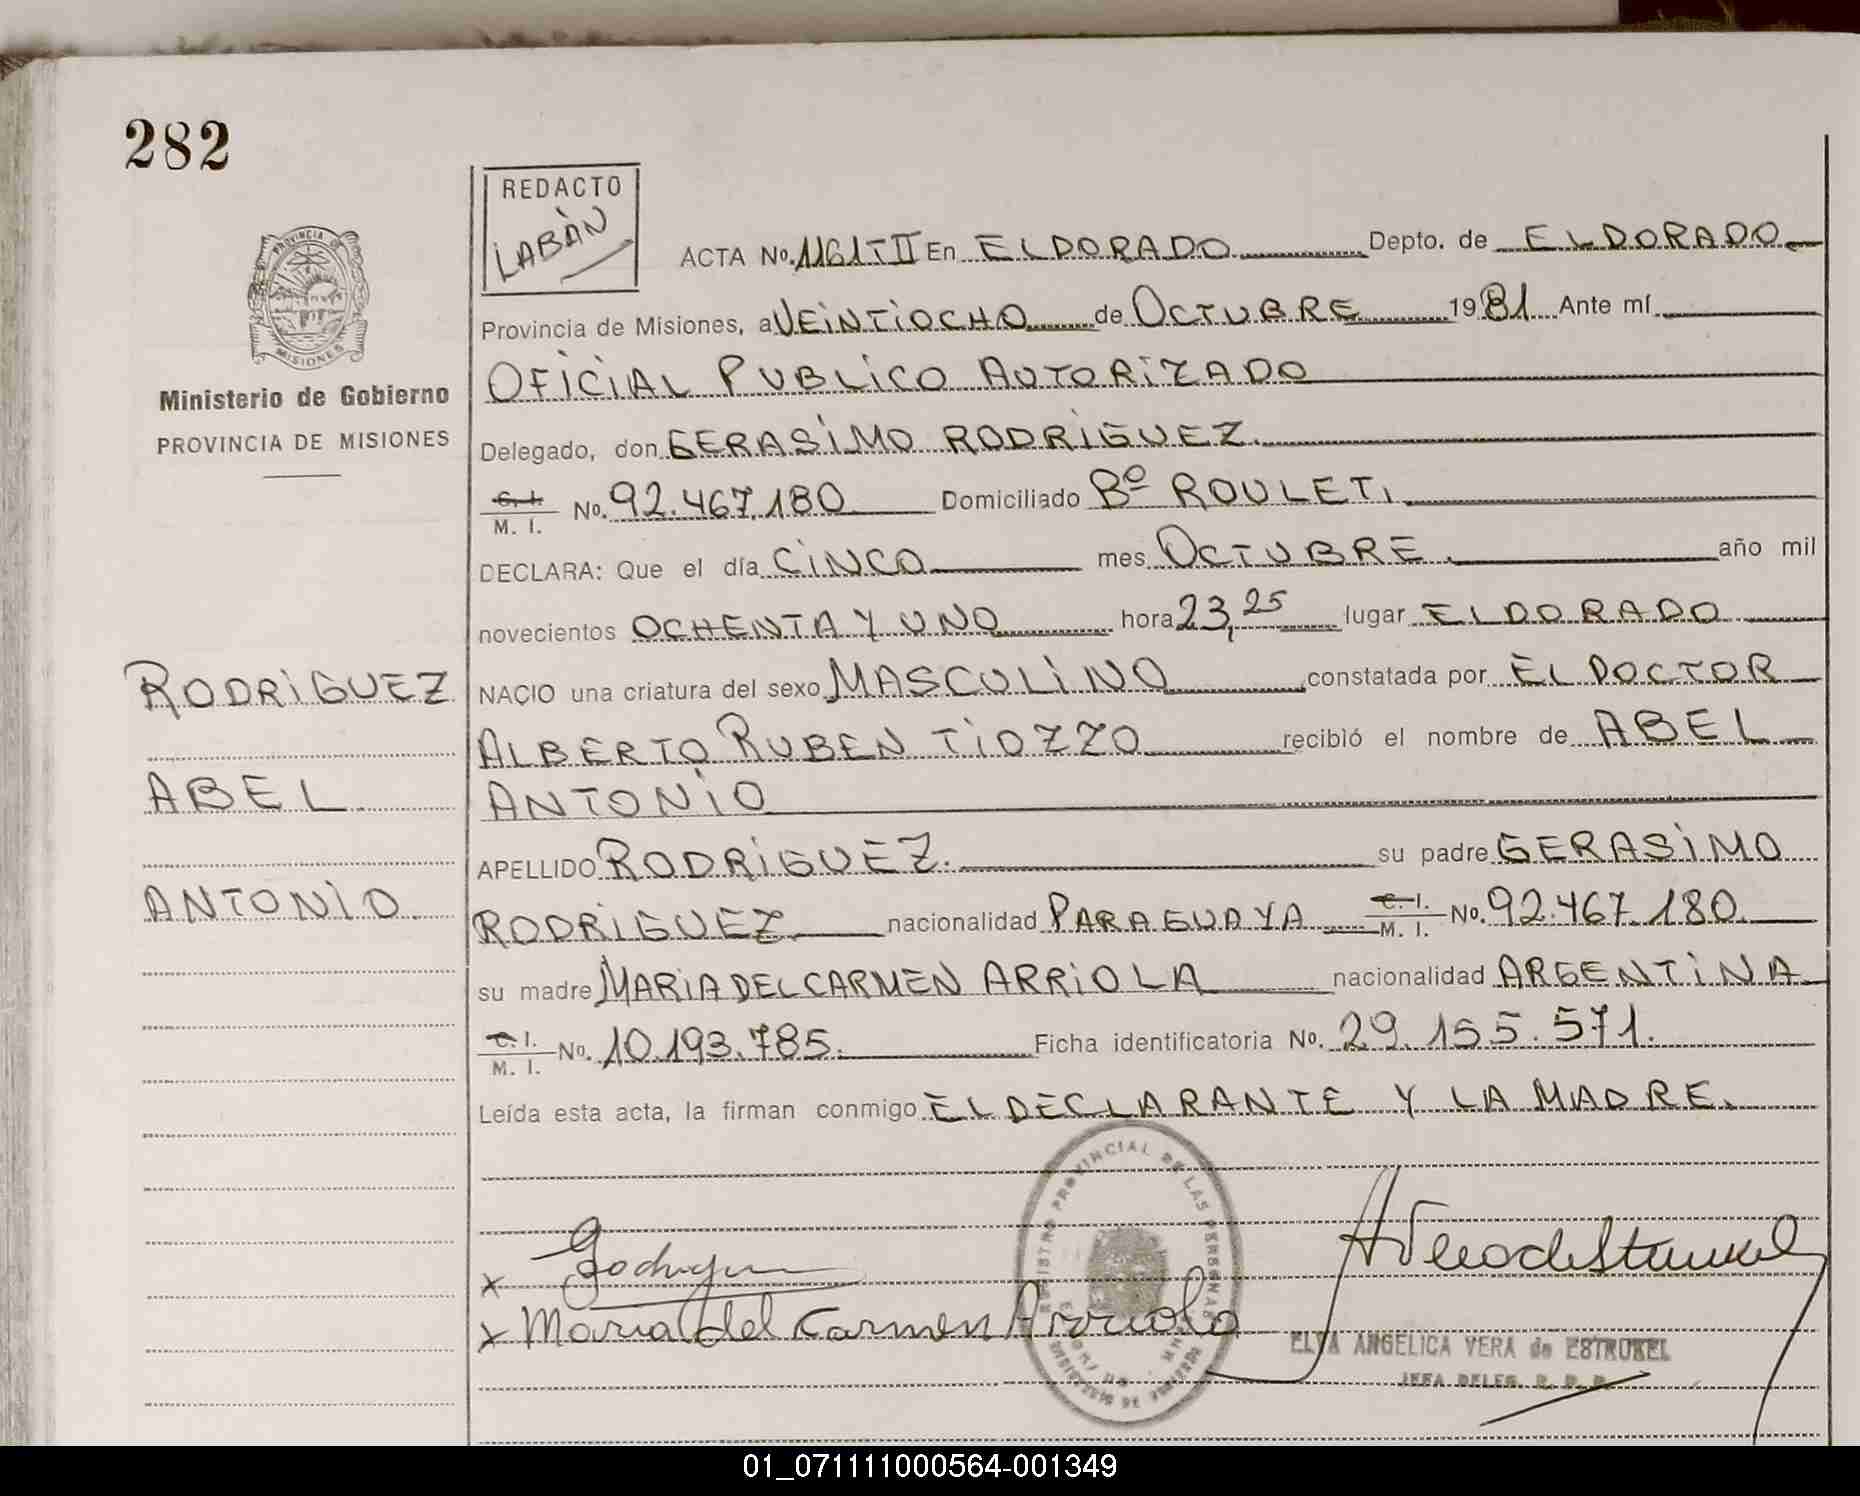 282
REDACTO
LABÀN
PROVINCIA DE
MISIONES
Ministerio de Gobierno
PROVINCIA DE MISIONES
ACTA No. 1161-T II En ELDORADO Depto. de ELDORADO
Provincia de Misiones, a VEINTIOCHO de OCTUBRE 1981 Ante mí
OFICIAL PUBLICO AUTORIZADO
Delegado, don GERASIMO RODRIGUEZ.
C. I.
M. I. No. 92.467.180 Domiciliado Bº ROULET.
DECLARA: Que el día CINCO mes OCTUBRE. año mil
novecientos OCHENTA Y UNO hora 23,25 lugar ELDORADO
NACIO una criatura del sexo MASCULINO constatada por EL DOCTOR
ALBERTO RUBEN TIOZZO recibió el nombre de ABEL
ANTONIO
APELLIDO RODRIGUEZ. su padre GERASIMO
RODRIGUEZ nacionalidad PARAGUAYA C. I. M. I. No. 92.467.180.
su madre MARIA DEL CARMEN ARRIOLA nacionalidad ARGENTINA
C. I.
M. I. No. 10.193.785. Ficha identificatoria No. 29.155.571.
Leída esta acta, la firman conmigo EL DECLARANTE Y LA MADRE.
RODRIGUEZ
ABEL
ANTONIO
REGISTRO PROVINCIAL DE LAS PERSONAS
x
x Maria del Carmen Arriola
ELVA ANGELICA VERA de ESTRUKEL
JEFA DELEG. R. P. P.
01_071111000564-001349